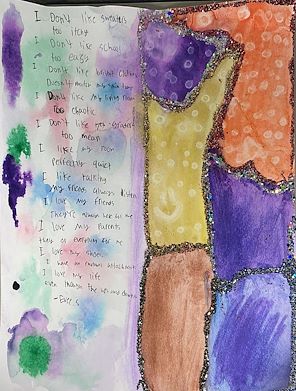 I Don't like sweaters
too itchy
I Don't like school
too easy
I Don't like bright clothes
Doesn't match my
I Don't like my living room
too chaotic
I Don't like
too mean
I like my room
perfectly quiet
I like talking
My friends always listen
I love my friends
They're always here for me
I love my parents
they do everything for me
I love my
I have an attachment
I love my life
even though the ups and downs